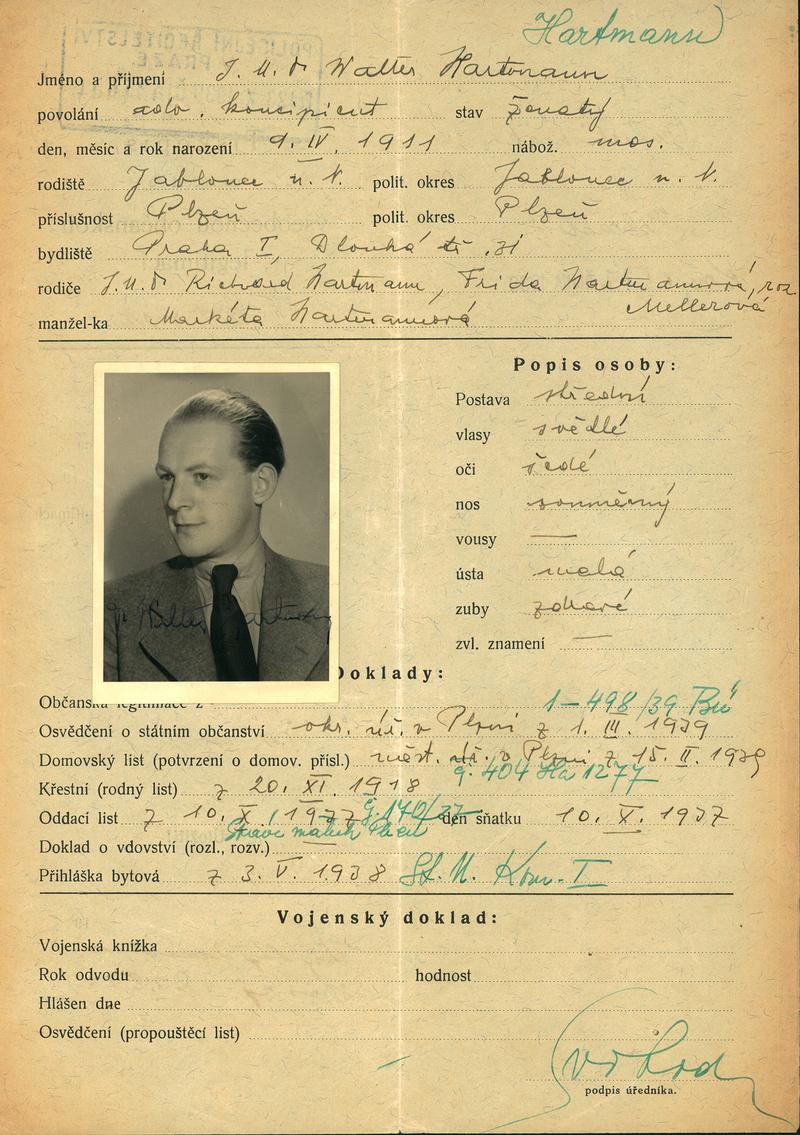 Hartmann
Jméno a příjmení J. U. Dr Walter Hartmann
povolání adv. koncipient stav ženatý
den, měsíc a rok narození 9. IV. 1911 nábož. mos.
rodiště Jablonec n. N. polit. okres Jablonec n. N.
příslušnost Plzeň polit. okres Plzeň
bydliště Praha I, Dlouhá tř. 31
rodiče J. U. Dr Richard Hartmann, Frida Hartmannová, roz.
Mellerová
manžel-ka Markéta Hartmannová
Popis osoby:
Postava střední
vlasy světlé
oči šedé
nos souměrný
vousy —
ústa malá
zuby zdravé
zvl. znamení —
Doklady:
Občanská legitimace z 1-498/39
Osvědčení o státním občanství okr. úř. v Plzni z 1. III. 1939
Domovský list (potvrzení o domov. přísl.) měst. úř. v Plzni z 15. II. 1939
č. 404 1277
Křestní (rodný list) z 20. XI. 1918
Oddací list z 10. X. 1937 č. 140/37 den sňatku 10. X. 1937
Plzeň
Doklad o vdovství (rozl., rozv.) —
Přihláška bytová z 3. V. 1938
Vojenský doklad:
Vojenská knížka
Rok odvodu hodnost
Hlášen dne
Osvědčení (propouštěcí list)
podpis úředníka.